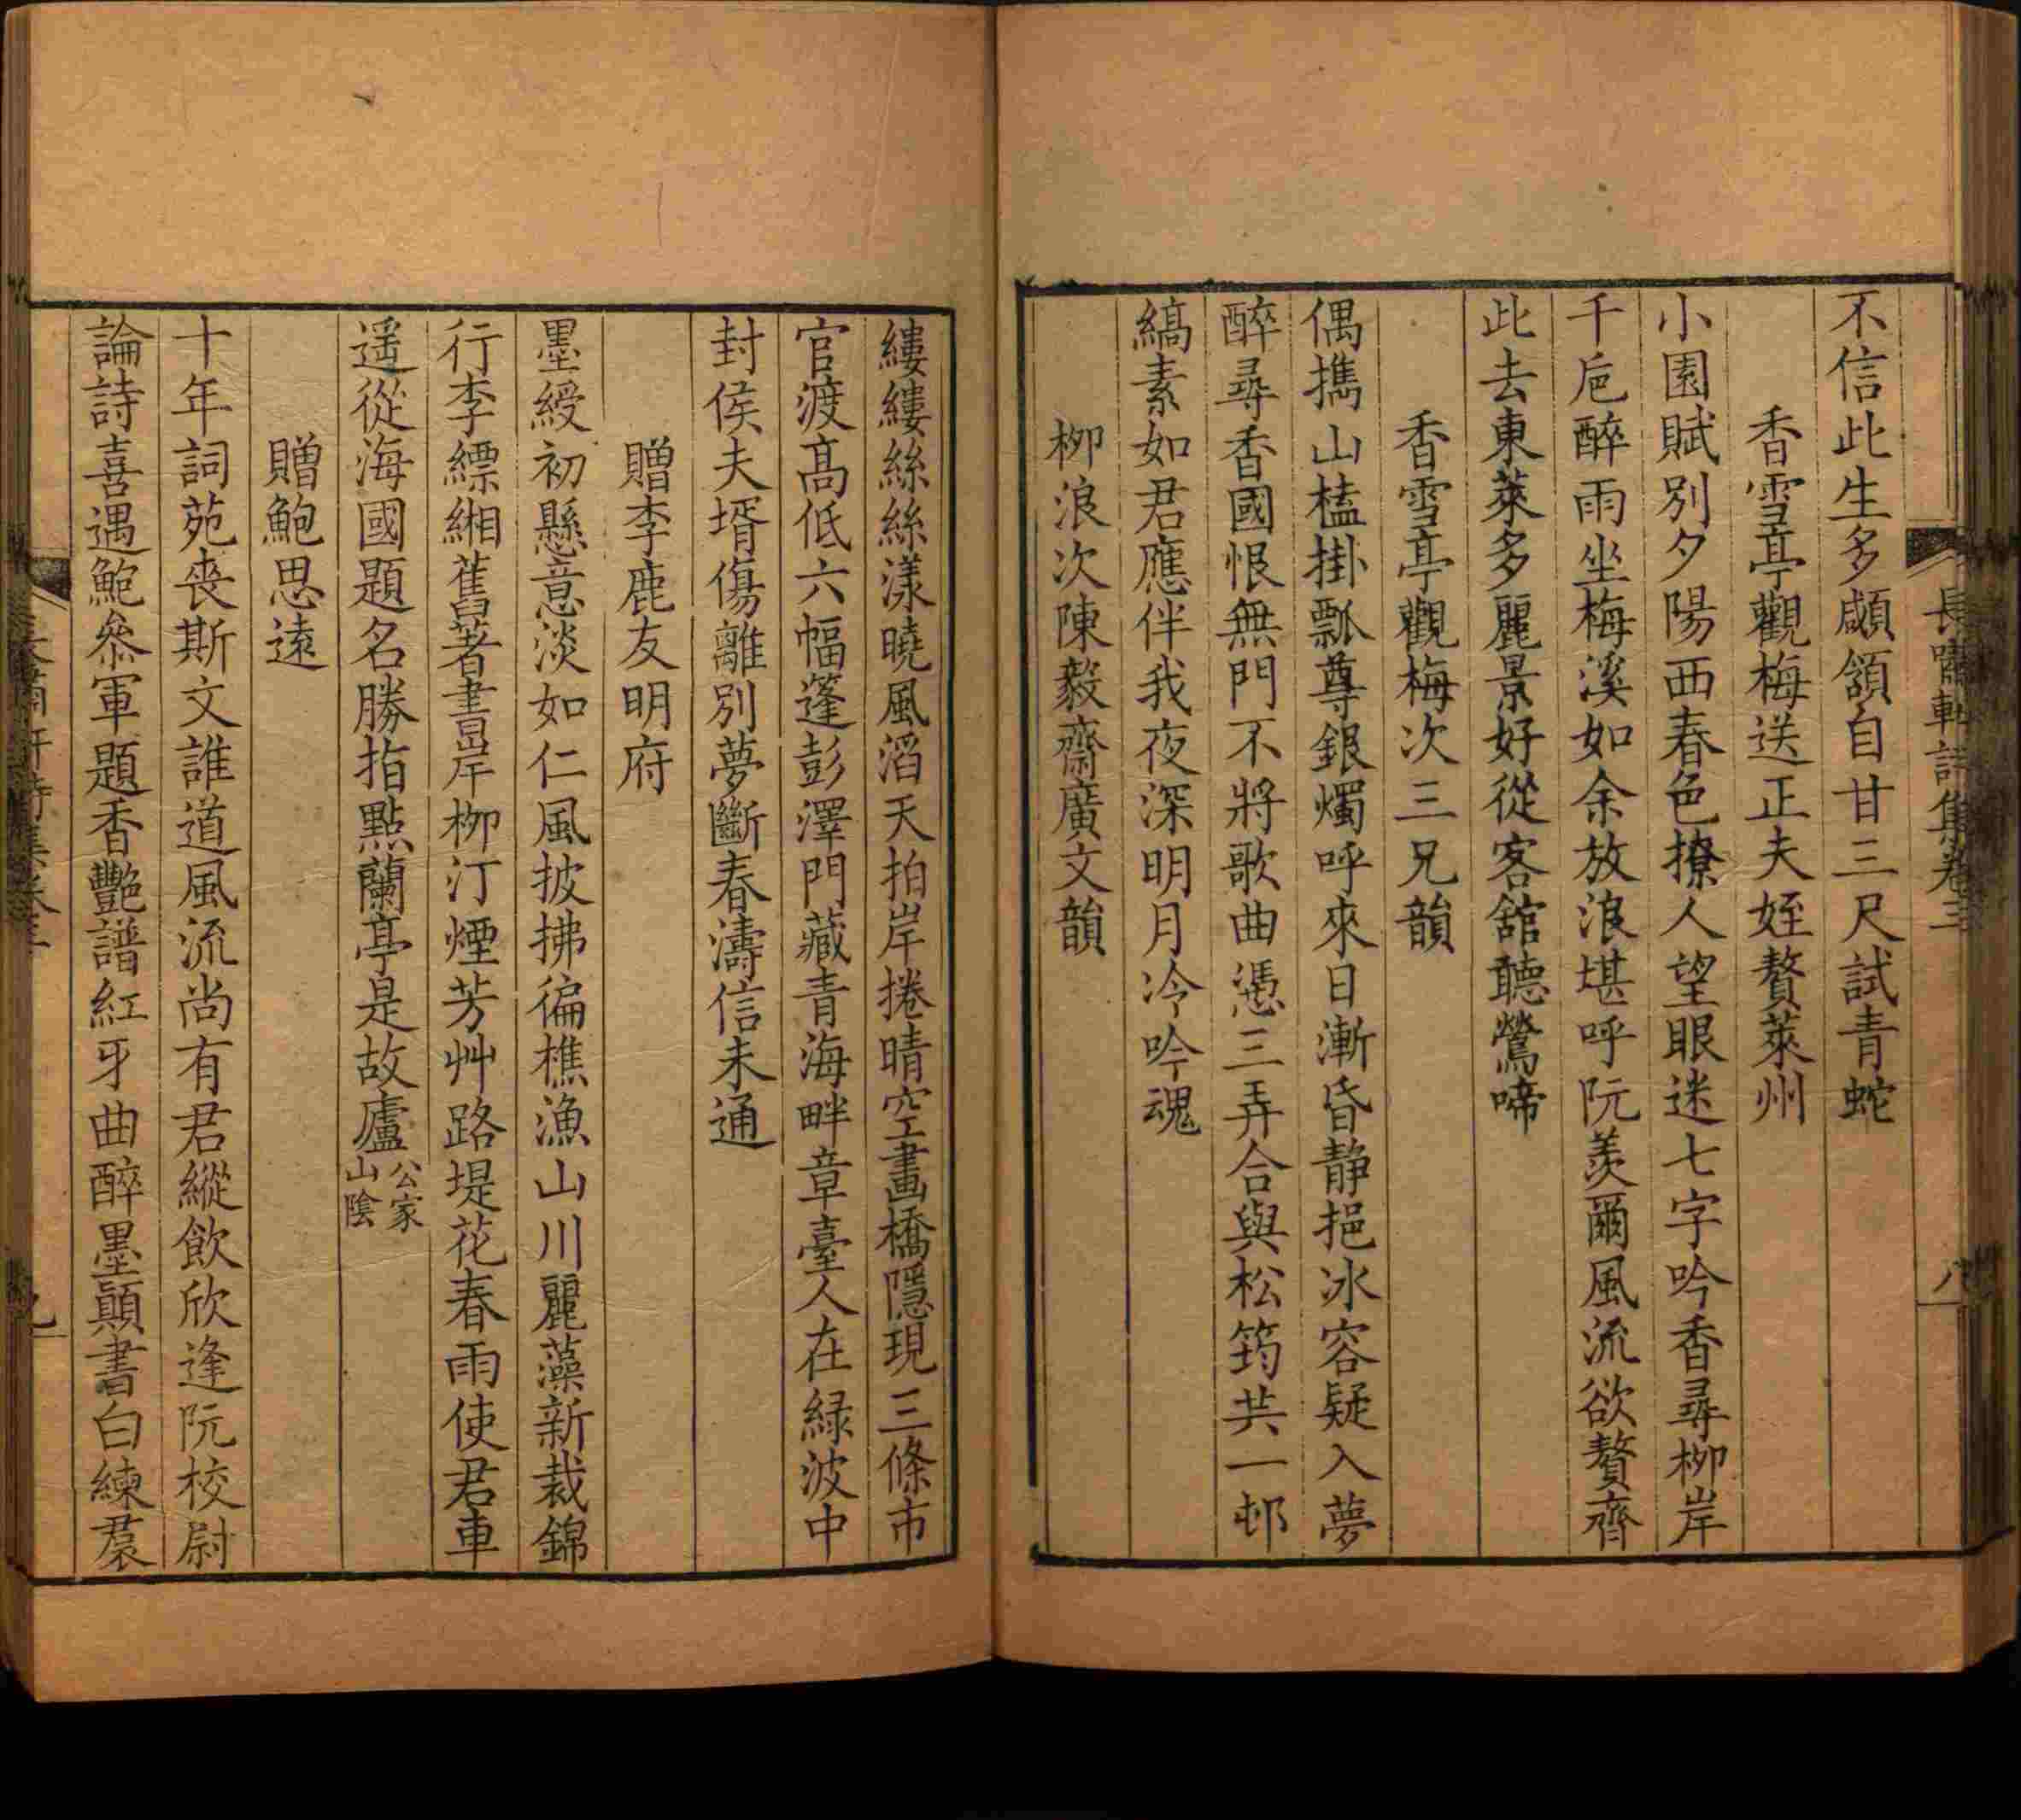 長嘯軒詩集卷三
八
不信此生多顑頷自甘三尺試青蛇
香雪亭觀梅送正夫姪贅萊州
小園賦別夕陽西春色撩人望眼迷七字吟香尋柳岸
千巵醉雨坐梅溪如余放浪堪呼阮羨爾風流欲贅齊
此去東萊多麗景好從客舘聽鶯啼
香雪亭觀梅次三兄韻
偶擕山榼掛瓢尊銀燭呼來日漸昏静挹冰容疑入夢
醉尋香國恨無門不將歌曲憑三弄合與松筠共一邨
縞素如君應伴我夜深明月冷吟魂
柳浪次陳毅齋廣文韻
縷縷絲絲漾曉風滔天拍岸捲晴空畫橋隱現三條市
官渡髙低六幅蓬彭澤門藏青海畔章臺人在緑波中
封侯夫壻傷離別夢斷春濤信未通
贈李鹿友明府
墨綬初懸意淡如仁風披拂徧樵漁山川麗藻新裁錦
行李縹緗舊著書岸柳汀煙芳艸路堤花春雨使君車
遥從海國題名勝指點蘭亭是故廬公家山陰
贈鮑思遠
十年詞苑丧斯文誰道風流尚有君縱飲欣逢阮校尉
論詩喜遇鮑叅軍題香艷譜紅牙曲醉墨顛書白練裠